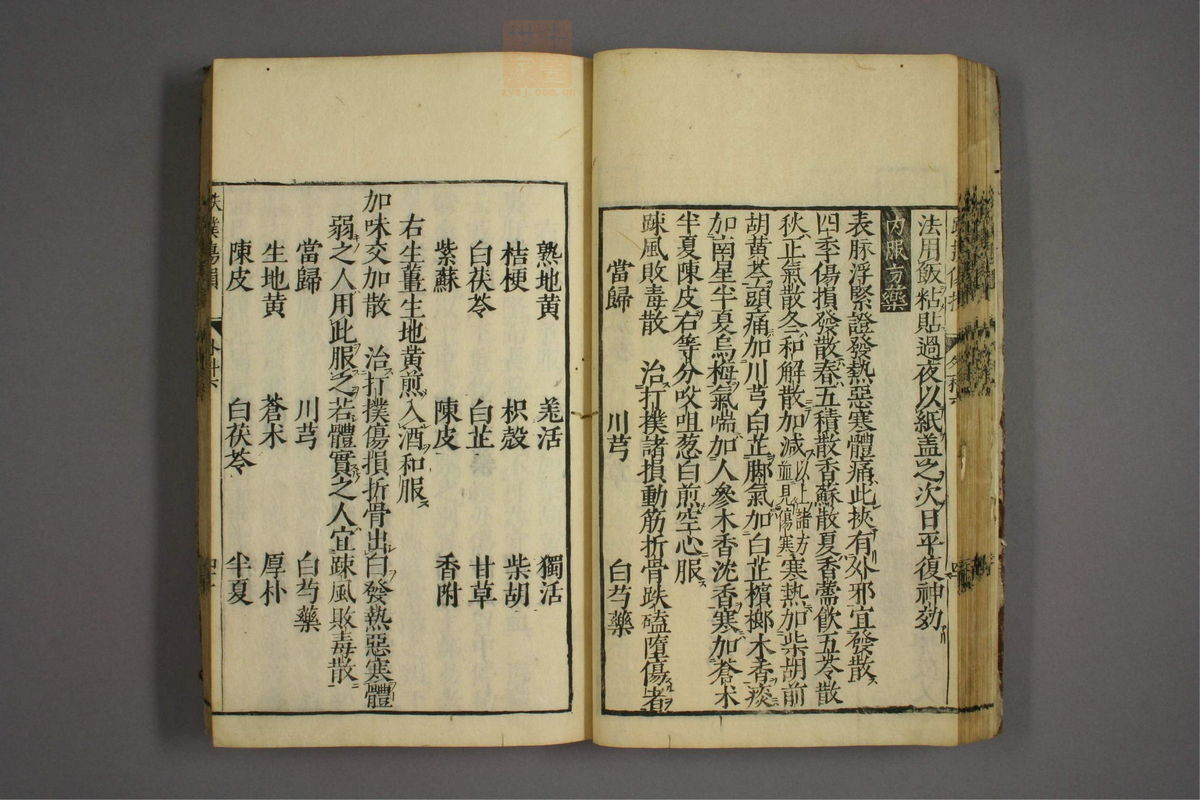 法用飯粘貼過夜以紙盖之次日平復神効
内服方藥
表脉浮緊證發熱惡寒體痛此挾有外邪宜發散
四季傷損發散春五積散香蘇散夏香薷飲五苓散
秋正氣散冬和解散加減以上諸方並見傷寒寒熱加柴胡前
胡黃芩頭痛加川芎白芷脚氣加白芷檳榔木香痰
加南星半夏烏梅氣喘加人參木香沈香寒加蒼术
半夏陳皮右等分㕮咀葱白煎空心服
踈風敗毒散 治打撲諸損動筋折骨跌磕墮傷者
當歸 川芎 白芍藥
熟地黄 羗活 獨活
桔梗 枳殻 柴胡
白茯苓 白芷 甘草
紫蘇 陳皮 香附
右生薑生地黄煎入酒和服
加味交加散 治打撲傷損折骨出臼發熱惡寒體
弱之人用此服之若體實之人宜踈風敗毒散
當歸 川芎 白芍藥
生地黄 蒼术 厚朴
陳皮 白茯苓 半夏